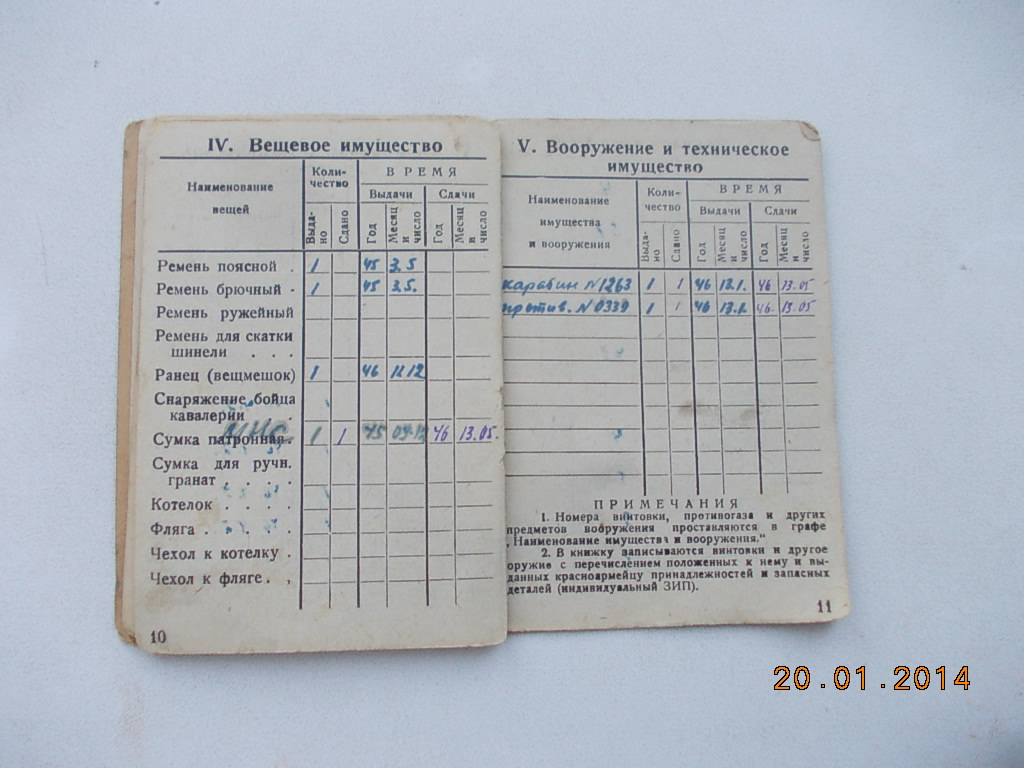 IV. Вещевое имущество
Наименование вещей
Коли-
чество
ВРЕМЯ
Выдачи Сдачи
Выда-
но
Сдано
Год
Месяц
и
число
Год
Месяц
и
число
Ремень поясной . 1 45 3.5
Ремень брючный - 1 45 3.5.
Ремень ружейный
Ремень для скатки
шинели . . .
Ранец (вещмешок) 1 46 12
Снаряжение бойца
кавалерии .
Сумка патронная. 1 1 45 46 13.05.
Сумка для ручн.
гранат . . . .
Котелок . . . .
Фляга . . . . .
Чехол к котелку .
Чехол к фляге. .
10
V. Вооружение и техническое
имущество
Наименование
имущества
и вооружения
Коли-
чество
ВРЕМЯ
Выдачи Сдачи
Выда-
но
Сдано
Год
Месяц
и
число
Год
Месяц
и
число
карабин N1263 1 1 46 13.1. 46 13.05
против. N0339 1 1 46 13.1. 46. 13.05
ПРИМЕЧАНИЯ
1. Номера винтовки, противогаза и других
предметов вооружения проставляются в графе
„Наименование имущества и вооружения."
2. В книжку записываются винтовки и другое
оружие с перечислением положенных к нему и вы-
данных красноармейцу принадлежностей и запасных
деталей (индивидуальный ЗИП).
11
20.01.2014